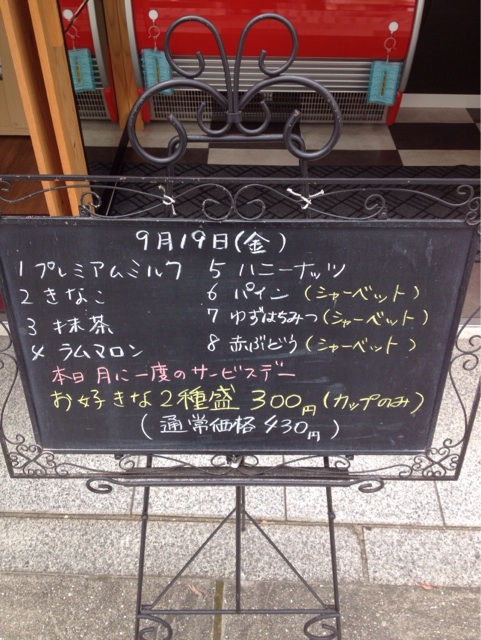 9月19日(金)
1 プレミアムミルク
2 きなこ
3 抹茶
4 ラムマロン
5 ハニーナッツ
6 パイン(シャーベット)
7 ゆずはちみつ(シャーベット)
8 赤ぶどう(シャーベット)
本日 月に一度のサービスデー
お好きな2種盛 300円(カップのみ)
(通常価格430円)